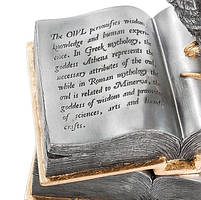 The OWL personifies wisdom
knowledge and human experi-
ence. In Greek mythology, the
goddess Athena represents the
necessary attributes of the owl
while in Roman mythology the
owl is related to Minerva,
goddess of wisdom and
of sciences, arts and
crafts.